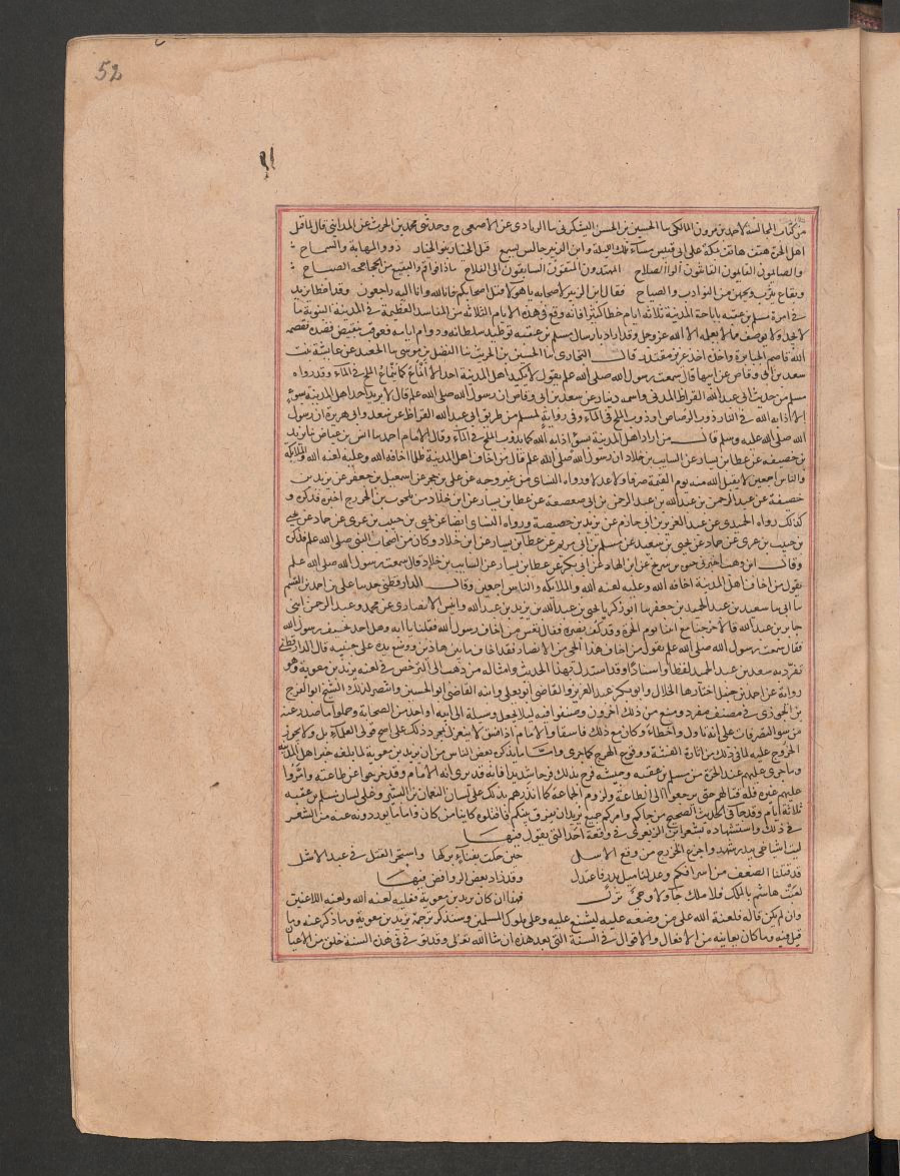 52
من كتاب المجالسة لاحمد بن مروان المالكي ثنا الحسين بن الحسن اليشكري ثنا الزيادي عن الاصمعي ح وحدثني محمد بن الحرث عن المدائني قال لما قتل
اهل الحرة هتف هاتف بمكة على ابي قبيس مساء تلك الليلة وابن الزبير جالس يسمع قتل الخيار بنو الخيار ذوو المهابة والسماح
والصائمون القائمون القانتون اولوا الصلاح المهتدون المتقون السابقون الى الفلاح ماذا بواقم والبقيع من الجحاجحة الصباح
وبقاع يثرب ويحهن من النوادب والصياح فقال ابن الزبير لاصحابه يا هؤلا قتل اصحابكم فانا لله وانا اليه راجعون وقد اخطا يزيد
في امره مسلم بن عقبة باباحة المدينة ثلاثة ايام خطا كبيرا فانه وقع في هذه الايام الثلاثة من المفاسد العظيمة في المدينة النبوية ما
لا يحد ولا يوصف مما لا يعلمه الا الله عز وجل وقد اراد بارسال مسلم بن عقبة توطيد سلطانه ودوام ايامه فعوقب بنقيض قصده فقصمه
الله قاصم الجبابرة واخذه اخذ عزيز مقتدر قال البخاري ثنا الحسين بن الحريث ثنا الفضل بن موسى ثنا الجعيد عن عايشة بنت
سعد بن ابي وقاص عن ابيها قال سمعت رسول الله صلى الله علم يقول لا يكيد اهل المدينة احد الا انماع كما ينماع الملح في الماء وقد رواه
مسلم من حديث ابي عبد الله القراظ المدني واسمه دينار عن سعد بن ابي وقاص ان رسول الله صلى الله علم قال لا يريد احد اهل المدينة بسوء
الا اذابه الله في النار ذوب الرصاص او ذوب الملح في الماء وفي رواية لمسلم من طريق ابي عبد الله القراظ عن سعد وابي هريرة ان رسول
الله صلى الله عليه وسلم قال من اراد اهل المدينة بسوء اذابه الله كما يذوب الملح في الماء وقال الامام احمد ثنا انس بن عياض ثنا يزيد
بن خصيفة عن عطا بن يسار عن السايب بن خلاد ان رسول الله صلى الله علم قال من اخاف اهل المدينة ظلما اخافه الله وعليه لعنة الله والملائكة
والناس اجمعين لا يقبل الله منه يوم القيمة صرفا ولا عدلا ورواه النساي من غير وجه عن علي بن حجر عن اسمعيل بن جعفر عن يزيد بن
خصيفة عن عبد الرحمن بن عبد الله بن عبد الرحمن بن ابي صعصعة عن عطا بن يسار عن ابن خلاد من بلحرث بن الخزرج اخبره فذكره و
كذلك رواه الحميدي عن عبد العزيز بن ابي حازم عن يزيد بن خصيفة ورواه النساي ايضا عن يحيى بن حبيب بن عربي عن حماد عن يحيى
بن حبيب بن عربي عن حماد عن يحيى بن سعيد عن مسلم بن ابي مريم عن عطا بن يسار عن ابن خلاد وكان من اصحاب النبي صلى الله علم فذكره
وقال ابن وهب اخبرني حيوة بن شريح عن ابن الهاد عن ابي بكر عن عطا بن يسار عن السايب بن خلاد قال سمعت رسول الله صلى الله علم
يقول من اخاف اهل المدينة اخافه الله وعليه لعنة الله والملائكة والناس اجمعين وقال الدارقطني حدثنا علي بن احمد بن القسم
ثنا ابي ثنا سعيد بن عبد الحميد بن جعفر ثنا ابو زكريا يحيى بن عبد الله بن يزيد بن عبد الله وانيس الانصاري عن محمد وعبد الرحمن ابني
جابر بن عبد الله قالا خرجنا مع ابينا يوم الحرة وقد كف بصره فقال تعس من اخاف رسول الله فقلنا يا ابه وهل احد يخيف رسول الله
فقال سمعت رسول الله صلى الله علم يقول من اخاف هذا الحي من الانصار فقد اخاف ما بين هاذين ووضع يده على جنبيه قال الدارقطني
تفرد به سعد بن عبد الحميد لفظا واسنادا وقد استدل بهذا الحديث وامثاله من ذهب الى الترخص في لعنة يزيد بن معوية وهو
رواية عن احمد بن حنبل اختارها الخلال وابو بكر عبد العزيز والقاضي ابو يعلى وابنه القاضي ابو الحسين وانتصر لذلك الشيخ ابو الفرج
بن الجوزي في مصنف مفرد ومنع من ذلك اخرون وصنفوا فيه ليلا يجعل وسيلة الى ابيه او احد من الصحابة وحملوا ما صدر عنه
من سوء التصرفات على انه تاول واخطا وكان مع ذلك فاسقا والامام اذا فسق لا ينعزل بمجرد ذلك على اصح قولي العلماء بل ولا يجوز
الخروج عليه لما في ذلك من اثارة الفتنة ووقوع الهرج كما جرى واما ما يذكره بعض الناس من ان يزيد بن معوية لما بلغه خبر اهل المدينة
وما جرى عليهم عند الحرة من مسلم بن عقبة وجيشه فرح بذلك فرحا شديدا فانه قد يرى انه الامام وقد خرجوا عن طاعته وامروا
عليهم غيره فله قتالهم حتى يرجعوا الى الطاعة ولزوم الجماعة كما انذرهم بذلك على لسان النعمان بن البشير وعلى لسان مسلم بن عقبة
ثلاثة ايام وقد جا في الحديث الصحيح من جاكم وامركم جميع يريد ان يفرق بينكم فاقتلوه كاينا من كان واما ما يوردونه عنه من الشعر
في ذلك واستشهاده بشعر ابن الزبعرى في وقعة احد التي يقول فيها
ليت اشياخي ببدر شهدوا جزع الخزرج من وقع الاسل حين حكت بفناء بركها واستحر القتل في عبد الاشل
قد قتلنا الضعف من اشرافكم وعدلنا ميل بدر فاعتدل وقد زاد بعض الروافض فيها
لعبت هاشم بالملك فلا ملك جا ولا وحي نزل فهذا ان كان يزيد بن معوية فعليه لعنة الله ولعنة اللاعنين
وان لم يكن قاله فلعنة الله على من وضعه عليه ليشنع عليه وعلى ملوك المسلمين وسنذكر ترجمة يزيد بن معوية وما ذكر عنه وما
قيل فيه وما كان يعاينه من الافعال والاقوال في السنة التي بعد هذه ان شا الله تعالى وقد توفي في هذه السنة خلق من الاعيان